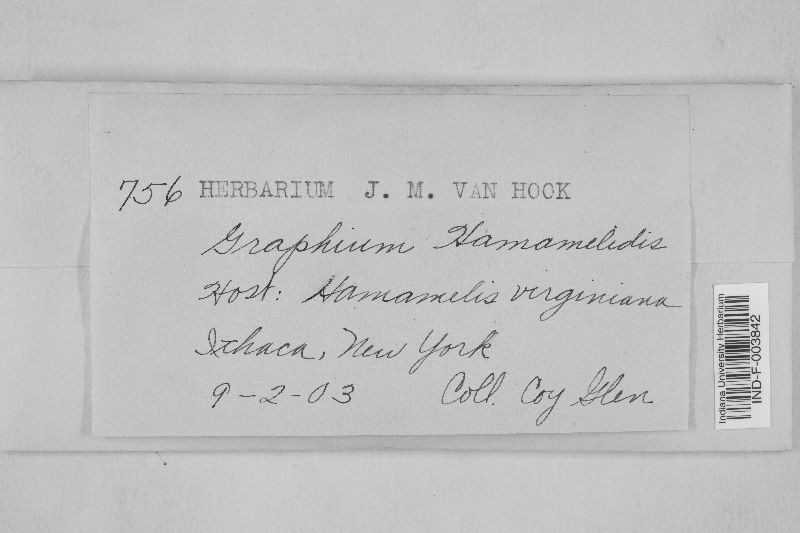 756 HERBARIUM J. M. VAN HOOK
Graphium Hamamelidis
Host: Hamamelis virginiana
Ithaca, New York
9-2-03 Coll. Coy Glen
Indiana University Herbarium
IND-F-003842